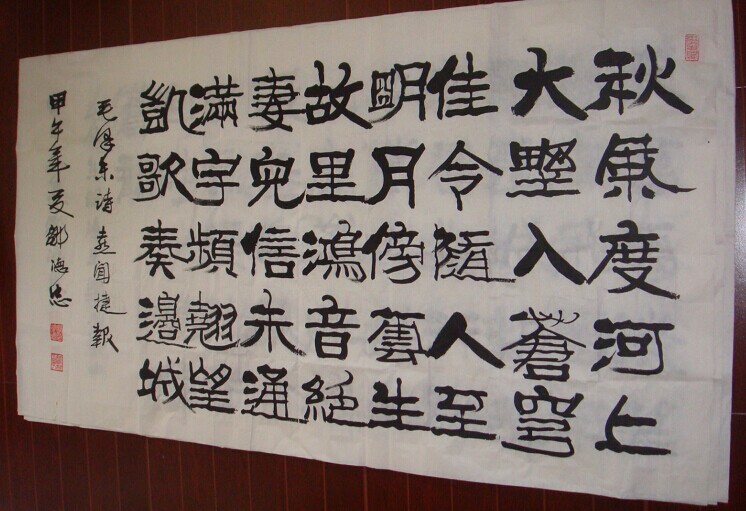 秋風度河上
大野入蒼穹
佳令隨人至
明月傍雲生
故里鴻音絕
妻兒信未通
滿宇頻翹望
凱歌奏邊城
毛澤东詩喜聞捷報
甲午年夏鄒德忠